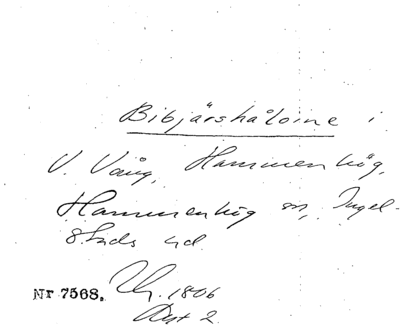 Bibjärshåloine i
V. Vång, Hammenhög,
Hammenhög sn, Ingel-
stads hd
Nr 7568. 1806
Akt 2